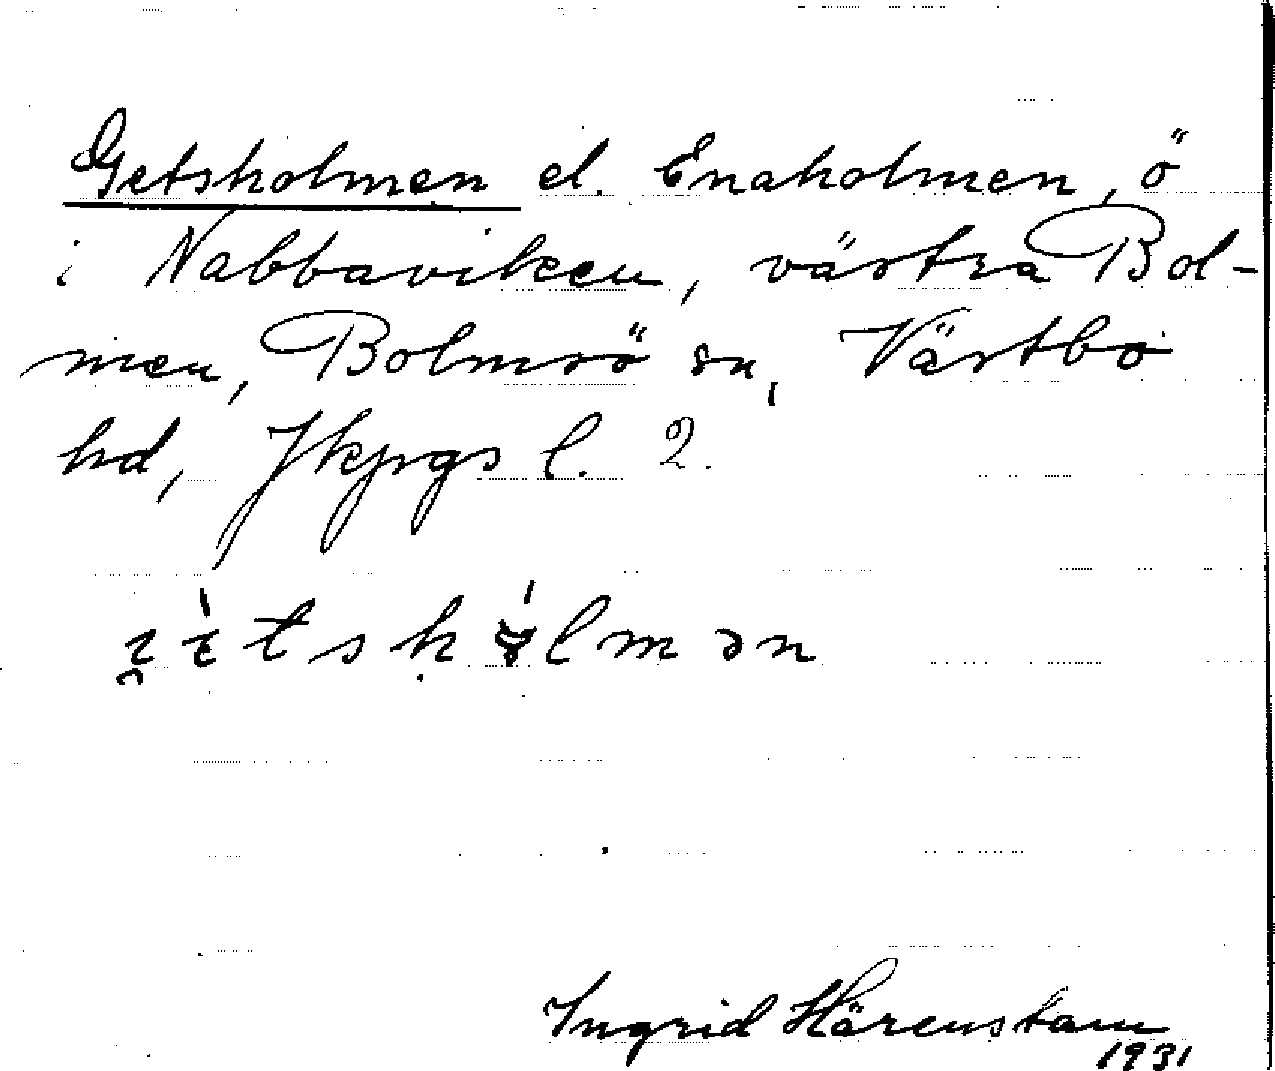 Getsholmen el. Enaholmen, ö
i Nabbaviken, västra Bol-
men, Bolmsö sn, Västbo
hd, Jkpgs l. 2.
Ingrid Härenstam
1931